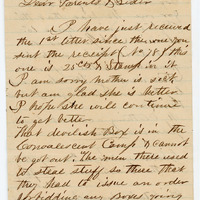 Dear Parents & Sister
I have just received
the 1st letter since the one you
sent the receipt (No 78) of this
one is 25 cts & Stamp in it
I am sorry mother is sick
but am glad she is better
I hope she will continue
to get better.
That devilish Box is in the
Convalescent Camp & Cannot
be got out. The men there used
to steal stuff so there that
they had to issue an order
forbidding any Boxes going